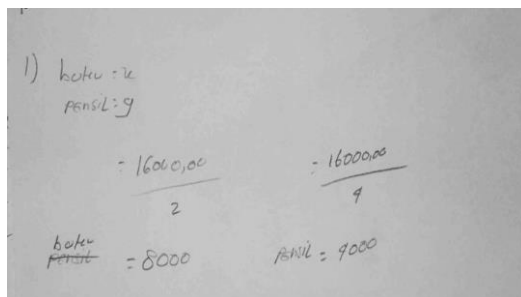 1) buku = x
pensil = y
= 16000,00 / 2
= 16000,00 / 4
buku
pensil = 8000
pensil = 4000